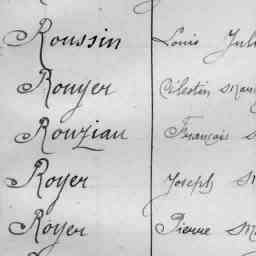 Roussin Louis Juli
Rouyer Célestin Mar
Rouziau François
Royer Joseph
Royer Pierre